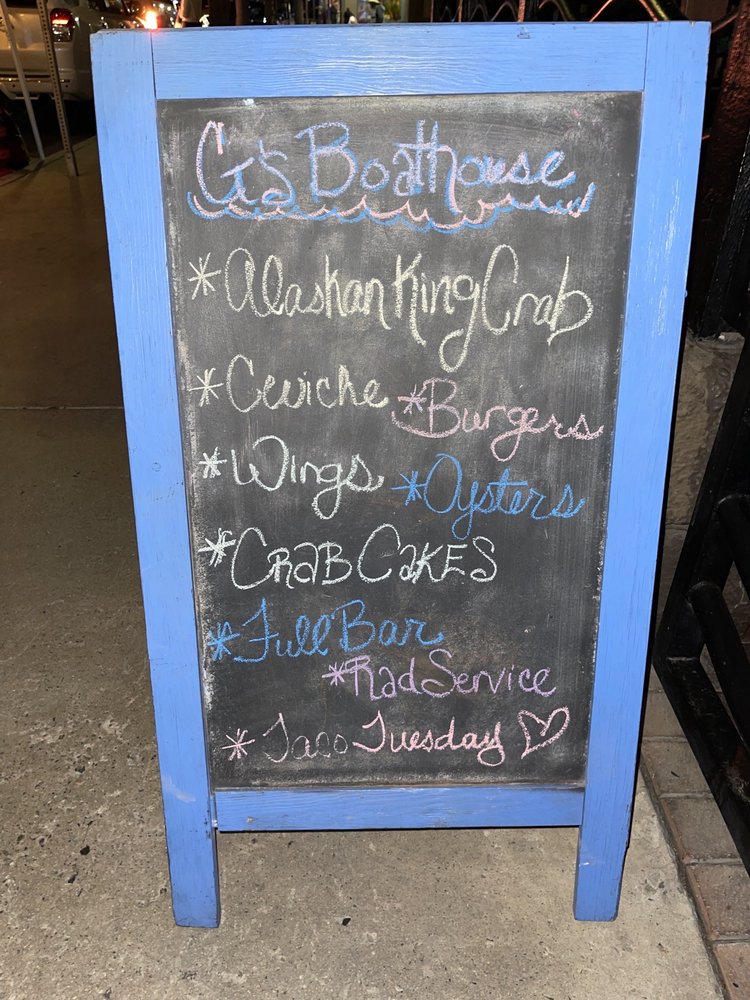 G's Boathouse
*Alaskan King Crab
*Ceviche *Burgers
*Wings *Oysters
*CRAB CAKES
*Full Bar
*Rad Service
*Taco Tuesday ♡